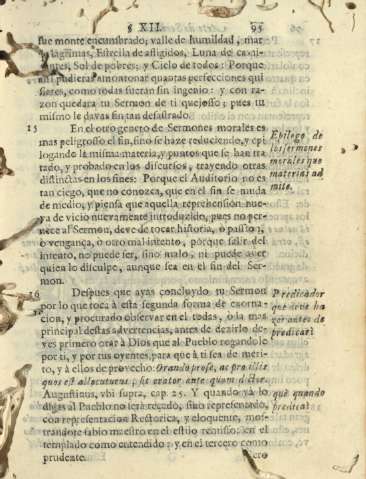 § XII. 95
fue monte encumbrado, valle de humildad, mar
de lagrimas, Estrella de afligidos, Luna de
Sol de pobres; y Cielo de todos: Porque
assi pudieras amontonar quantas perfecciones qui
sieres, como todas fueran sin ingenio: y con ra-
zon quedara tu Sermon de ti quejoso; pues tu
mismo le davas fin tan desastrado.
15 En el otro genero de Sermones morales es
mas peligroso el fin, sino se haze reduciendo, y epi
logando la misma materia, y puntos que se han tra
tado, y probado en los discursos, trayendo otras
distinctas en los fines: Porque el Auditorio no es
tan ciego, que no conozca, que en el fin se muda
de medio, y piensa que aquella reprehensión nue-
va de vicio nuevamente introduzido, pues no per-
nece al Sermon, deve de tocar historia, ò passion,
ò vengança, ò otro mal intento, porque salir del
intento, no puede ser, sino malo, ni puede aver
quien lo disculpe, aunque sea en el fin del Ser-
mon.
Epilogo de
los sermones
morales que
materias ad
mite.
16 Despues que ayas concluydo tu Sermon
por lo que toca à esta segunda forma de exorna-
cion, y procurado observar en el todas, ò la mas
principal destas advertencias, antes de dezirlo de-
ves primero orar à Dios que al Pueblo rogandole
por ti, y por tus oyentes, para que à ti sea de meri-
to, y à ellos de provecho: Orando pro se, ac pro illis
quos est allocuturus; sit orator antequam dictor.
Augustinus, vbi supra, cap. 25. Y quando yà lo
digas al Pueblo no serà reçado, sino representado,
con representacion Rectorica, y eloquente, mos-
trandote sabio maestro en el estilo remisso: en el
templado como entendido: y en el tercero como
prudente.
Predicador
que deve ha
zer antes de
predicar?
que quando
predica?
Pero